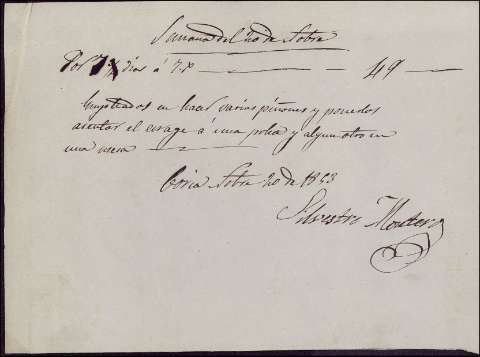 Semana del 20 de Sobre
Por 7 dias á 7 r 49
Empleados en hacer varios piñones y ponerlos
asentar el erage á una polea y algun otro en
una
Coria Sobre 20 de 1853
Silvestre Montero